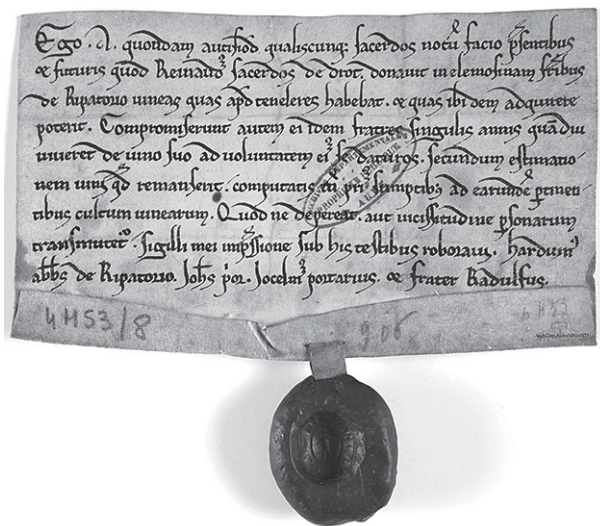 Ego . A. quondam autisiod qualiscunq; sacerdos notū facio p̄sentibus
& futuris quod Reinaud' sacerdos de drot. donauit in elemosinam fr̄ibus
de Ripatorio uineas quas apd teneleres habebat. & quas ibidem adquirere
poterit. Compromiserunt autem ei idem fratres singulis annis quādiu
uiueret de uino suo ad uoluntatem ei' secundum estimatio
nem uini qd remanserit. computatis tn̄ pri' sumptib' ad earundē ptinen
tibus cultum uinearum. Quod ne depereat. aut uicissitudine psonarum
transmutet'. Sigilli mei imp̄ssione sub his testibus roboraui. harduin'
abb̄s de Ripatorio. Joh̄s p̄or. Jocelin' portarius. & frater Radulfus.
4H53/8